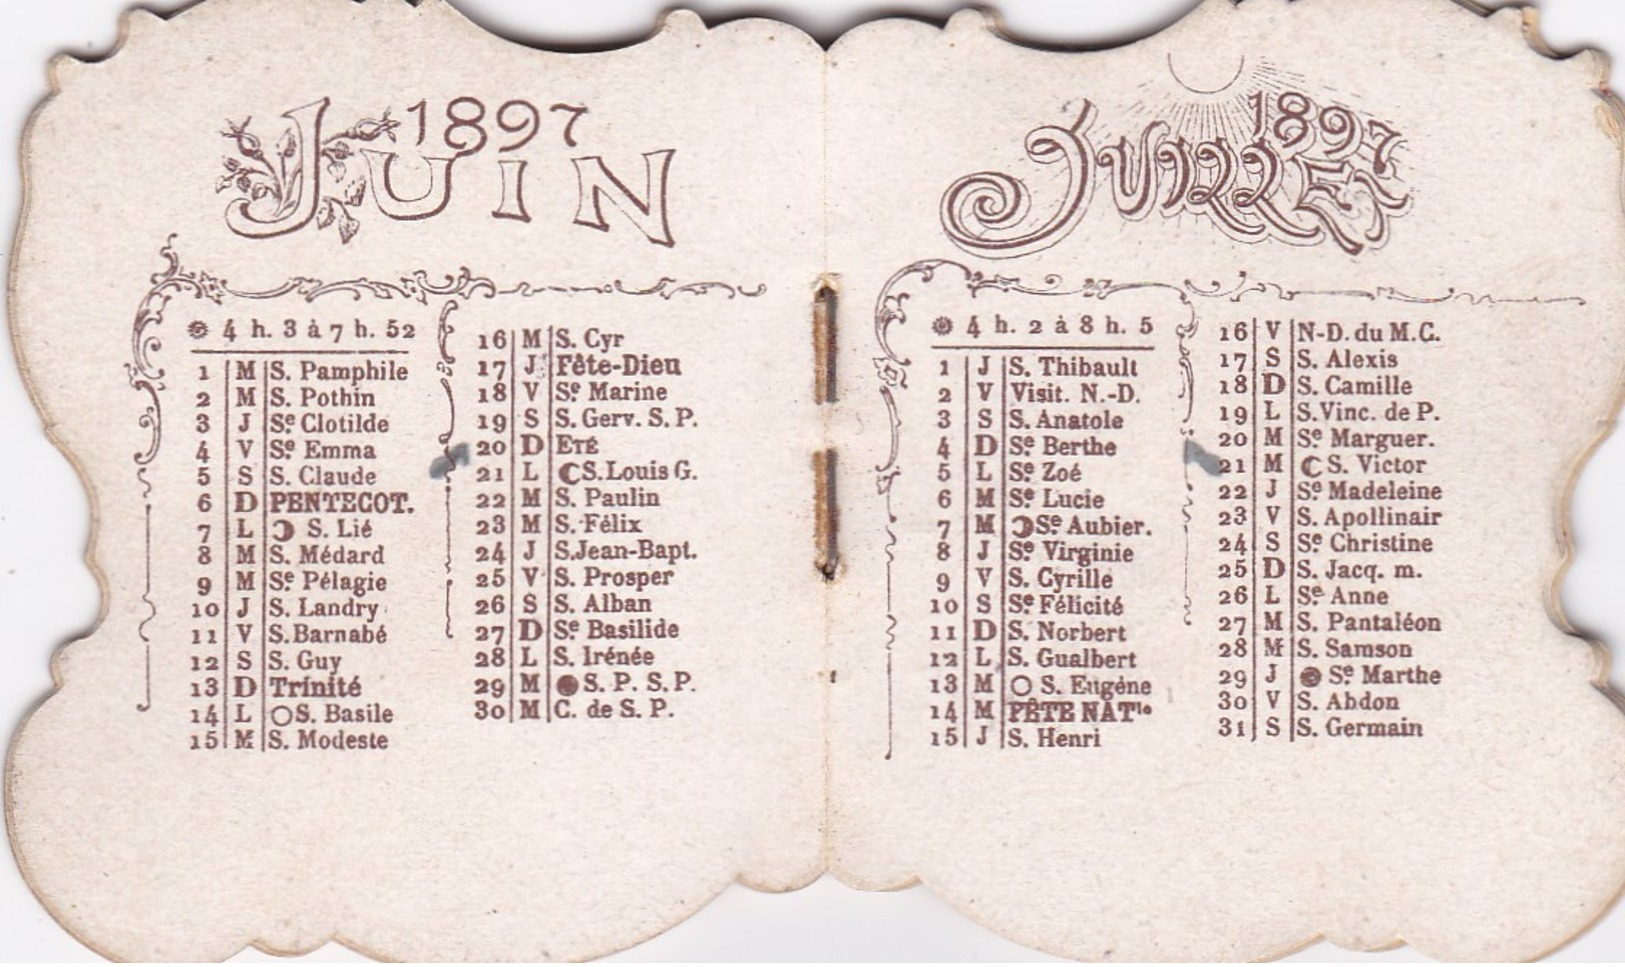 1897
JUIN
4 h. 3 à 7 h. 52
1 M S. Pamphile
2 M S. Pothin
3 J Sᵉ Clotilde
4 V Sᵉ Emma
5 S S. Claude
6 D PENTECOT.
7 L ☽ S. Lié
8 M S. Médard
9 M Sᵉ Pélagie
10 J S. Landry
11 V S. Barnabé
12 S S. Guy
13 D Trinité
14 L ○ S. Basile
15 M S. Modeste
16 M S. Cyr
17 J Fête-Dieu
18 V Sᵉ Marine
19 S S. Gerv. S. P.
20 D ETÉ
21 L ☾ S. Louis G.
22 M S. Paulin
23 M S. Félix
24 J S. Jean-Bapt.
25 V S. Prosper
26 S S. Alban
27 D Sᵉ Basilide
28 L S. Irénée
29 M ● S. P. S. P.
30 M C. de S. P.
1897
JUILLET
4 h. 2 à 8 h. 5
1 J S. Thibault
2 V Visit. N.-D.
3 S S. Anatole
4 D Sᵉ Berthe
5 L Sᵉ Zoé
6 M Sᵉ Lucie
7 M ☽ Sᵉ Aubier.
8 J Sᵉ Virginie
9 V S. Cyrille
10 S Sᵉ Félicité
11 D S. Norbert
12 L S. Gualbert
13 M ○ S. Eugène
14 M FÊTE NATˡᵉ
15 J S. Henri
16 V N-D. du M.C.
17 S S. Alexis
18 D S. Camille
19 L S. Vinc. de P.
20 M Sᵉ Marguer.
21 M ☾ S. Victor
22 J Sᵉ Madeleine
23 V S. Apollinair
24 S Sᵉ Christine
25 D S. Jacq. m.
26 L Sᵉ Anne
27 M S. Pantaléon
28 M S. Samson
29 J ● Sᵉ Marthe
30 V S. Abdon
31 S S. Germain